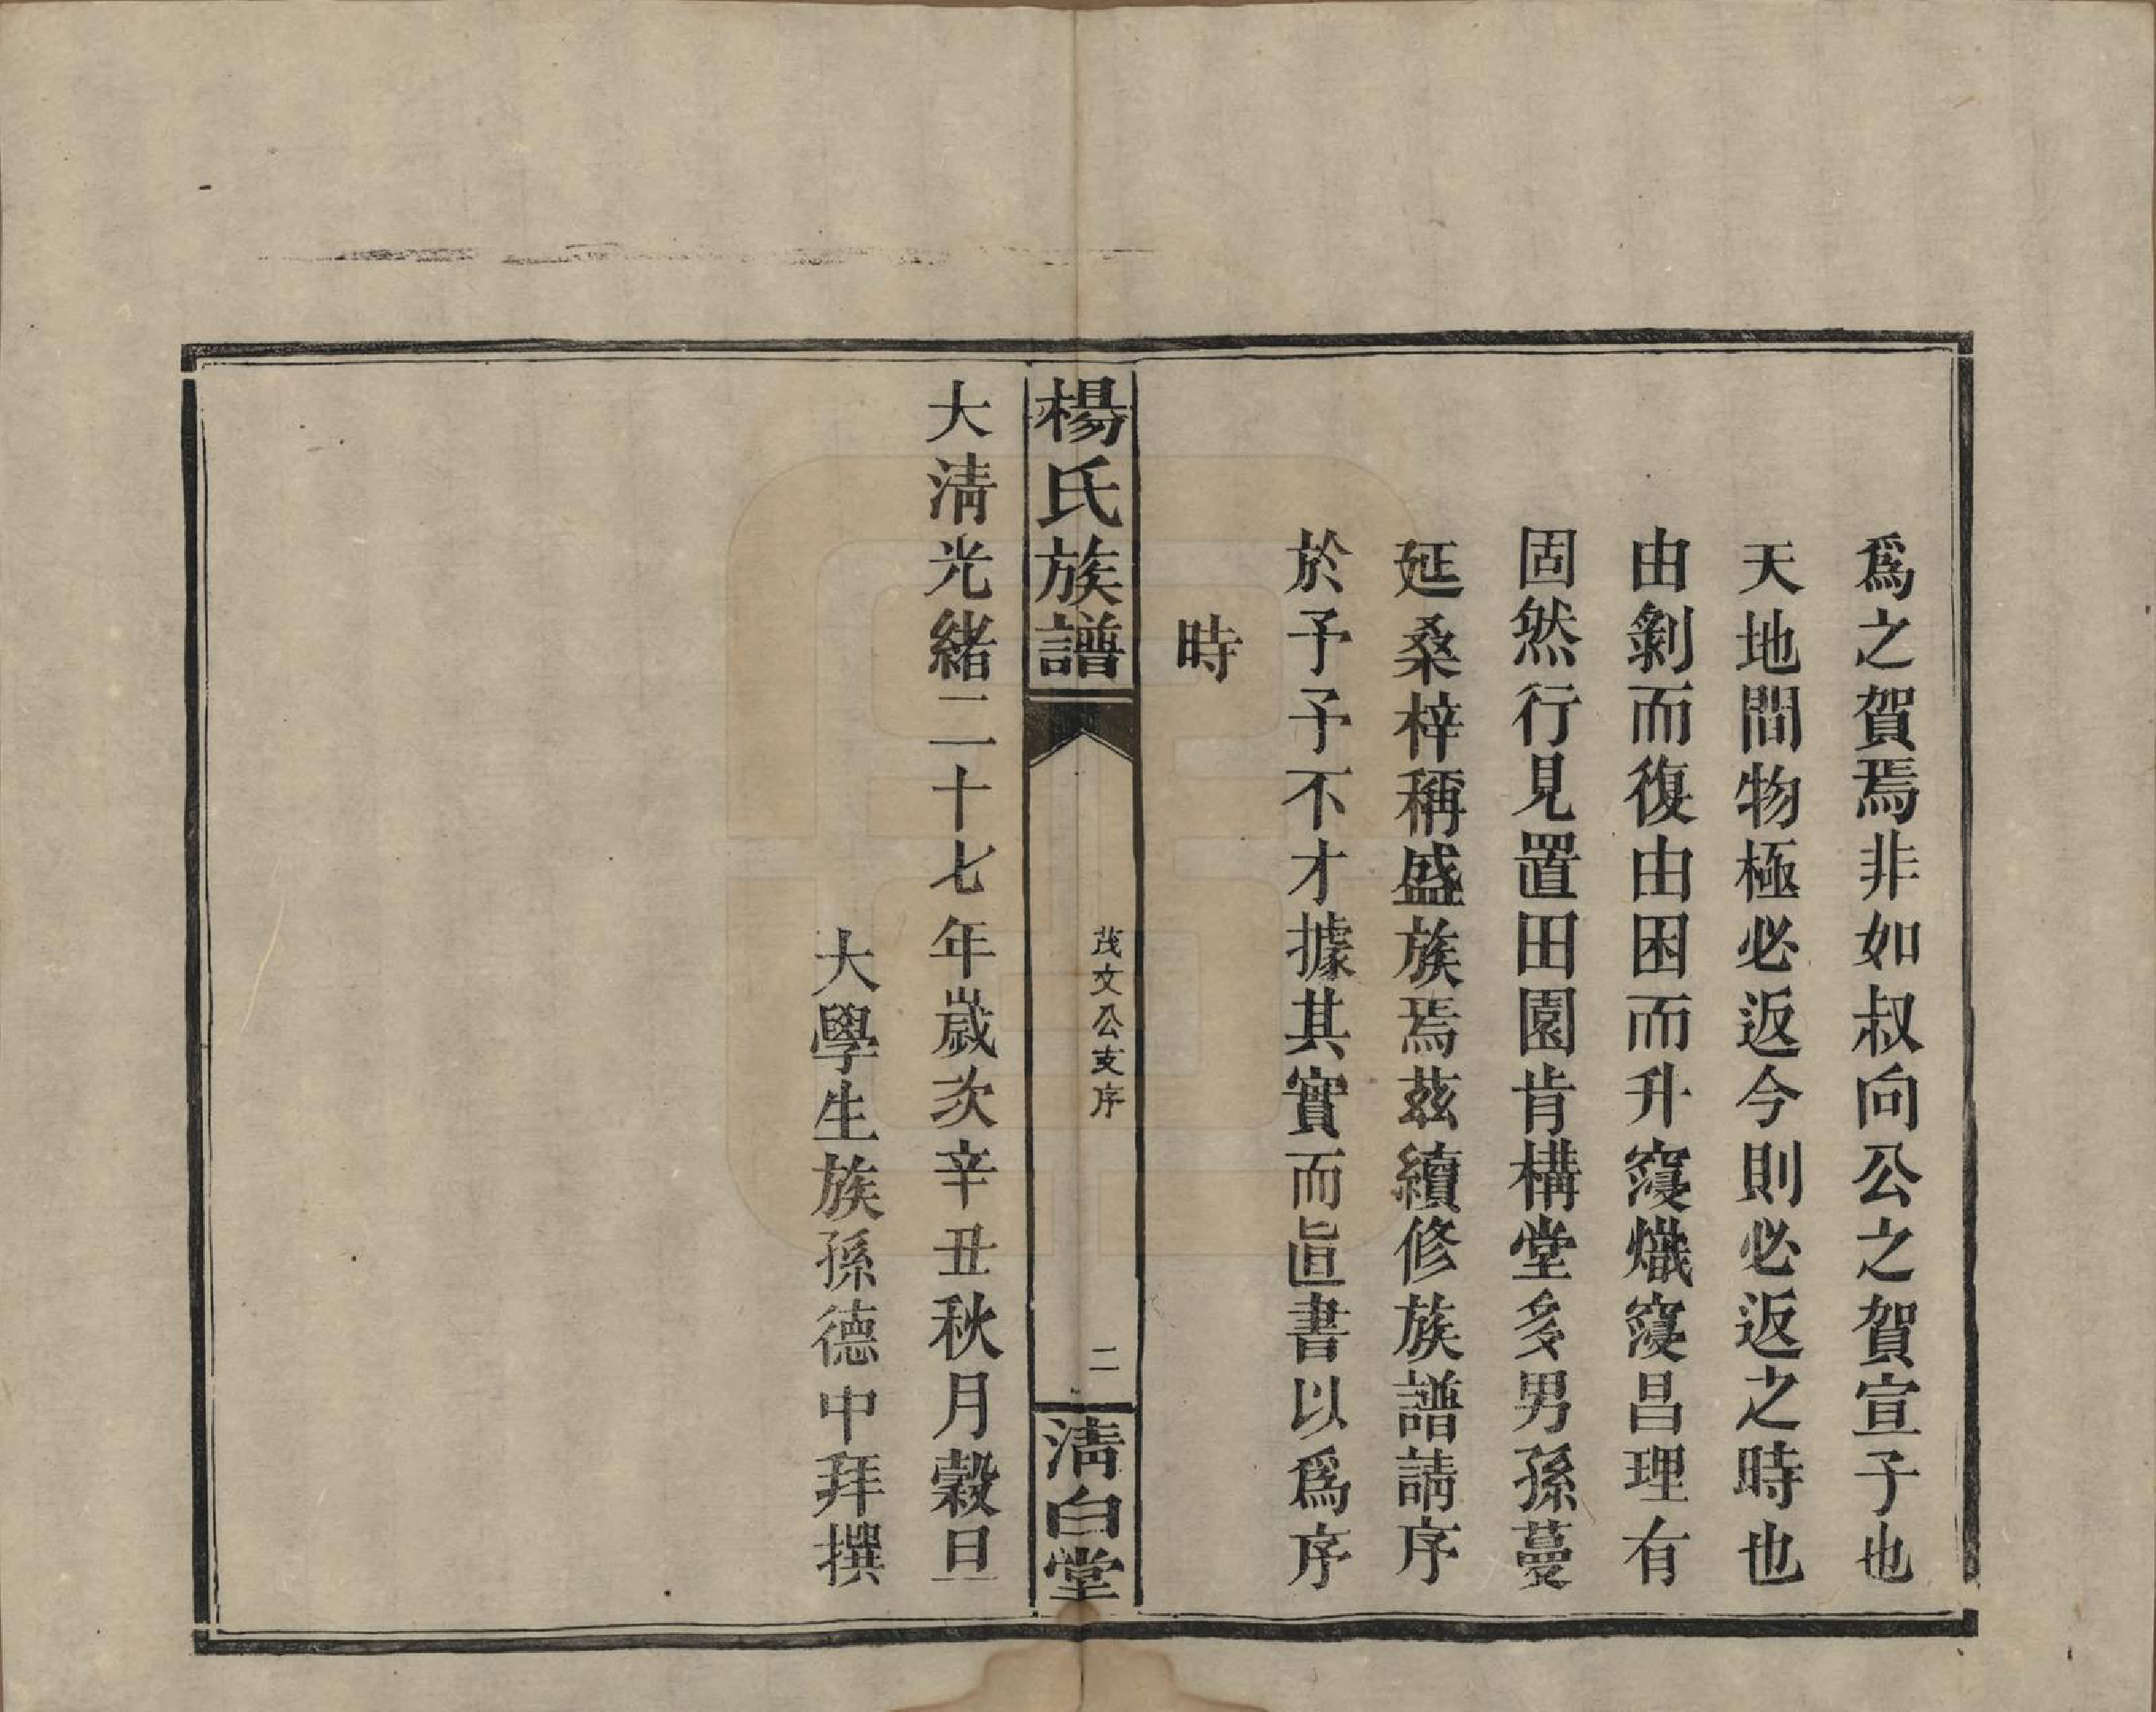 爲之賀焉非如叔向公之賀宣子也
天地間物極必返今則必返之時也
由剝而復由困而升寖熾寖昌理有
固然行見置田園肯構堂多男孫蔓
延桑梓稱盛族焉茲續修族譜請序
於予予不才據其實而直書以爲序
時
楊氏族譜
茂文公支序
二
清白堂
大清光緒二十七年歲次辛丑秋月穀旦
大學生族孫德中拜撰